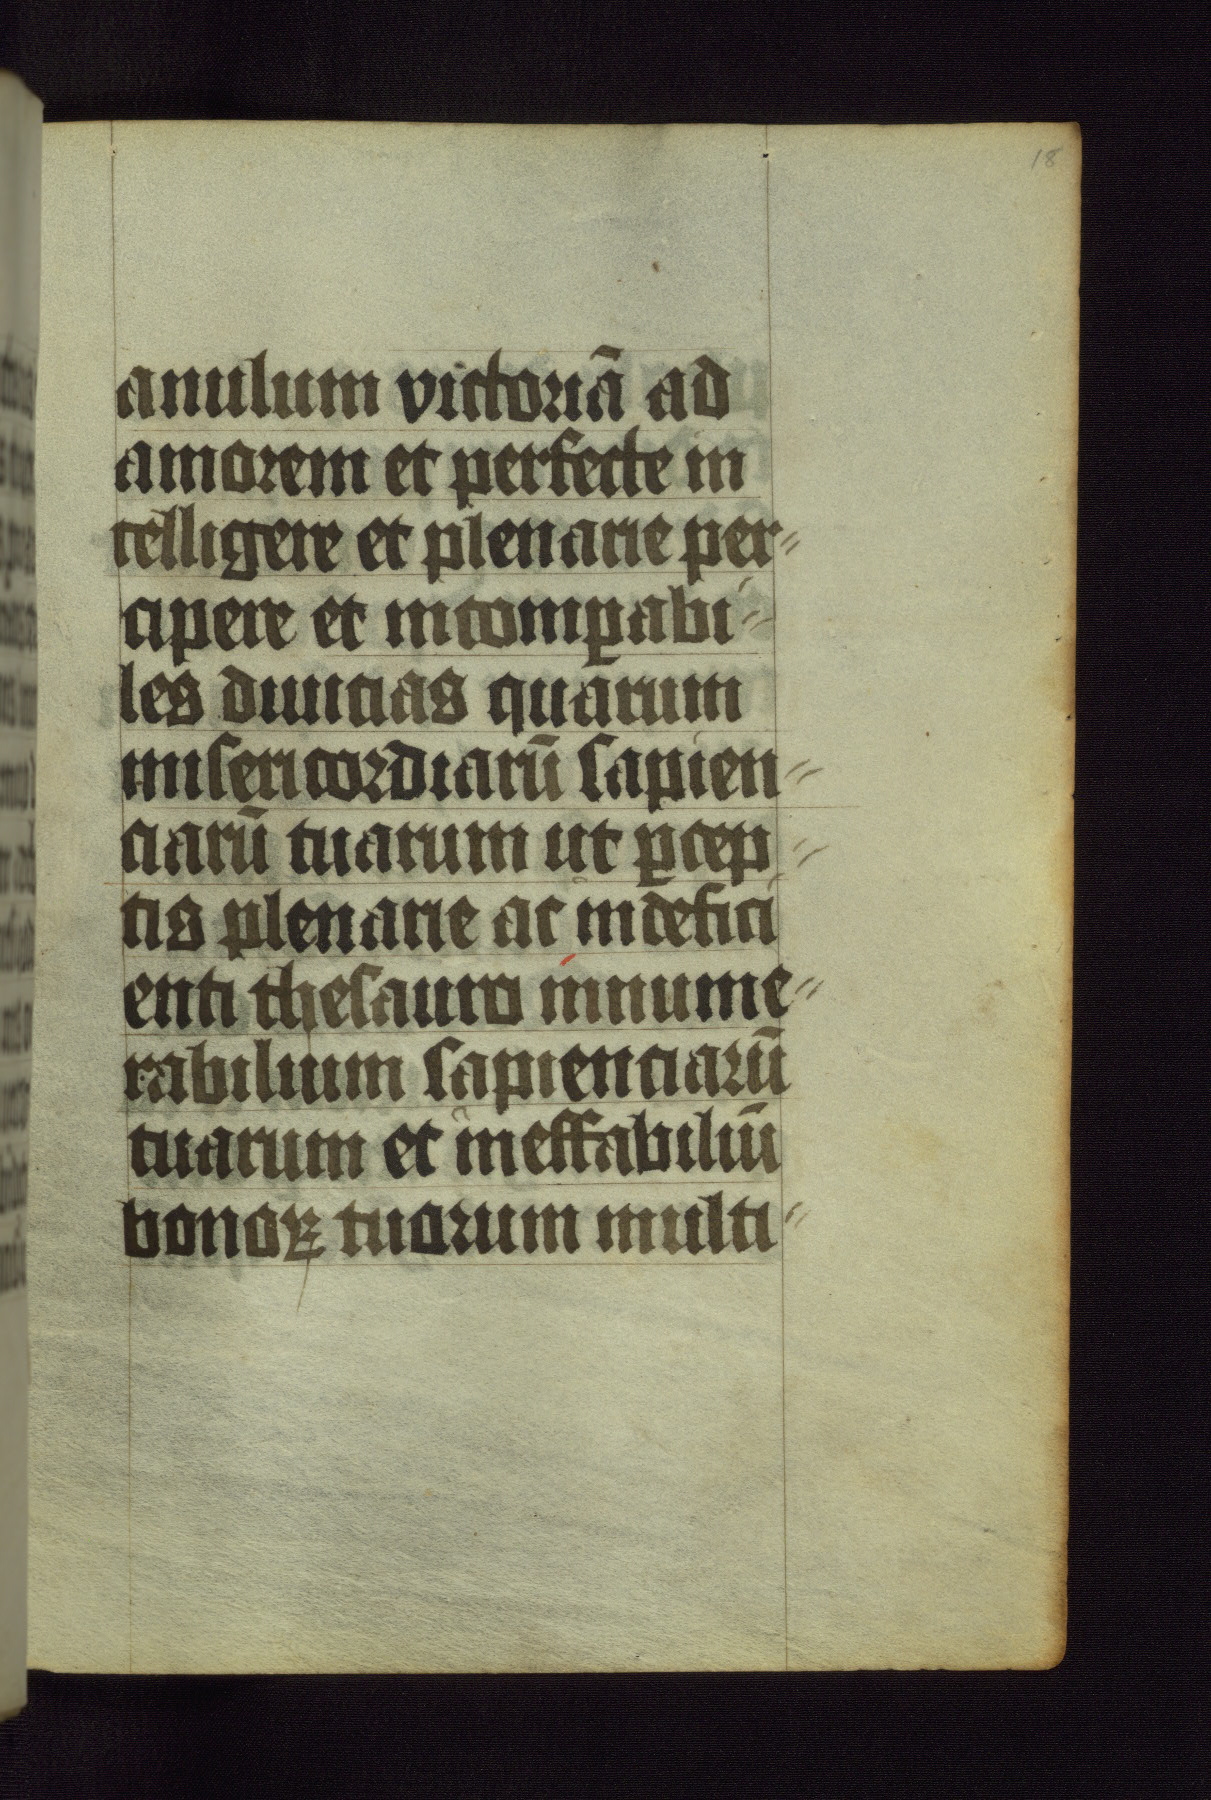 18
anulum victoriā ad
amorem et perfecte in
telligere et plenarie per=
cipere et incomꝑabi=
les diuicias quarum
misericordiarū sapien=
ciarū tuarum ut ꝑcep=
tis plenarie ac indefici
enti thesauro innume=
rabilium sapienciarū
tuarum et ineffabiliū
bonoꝝ tuorum multi=